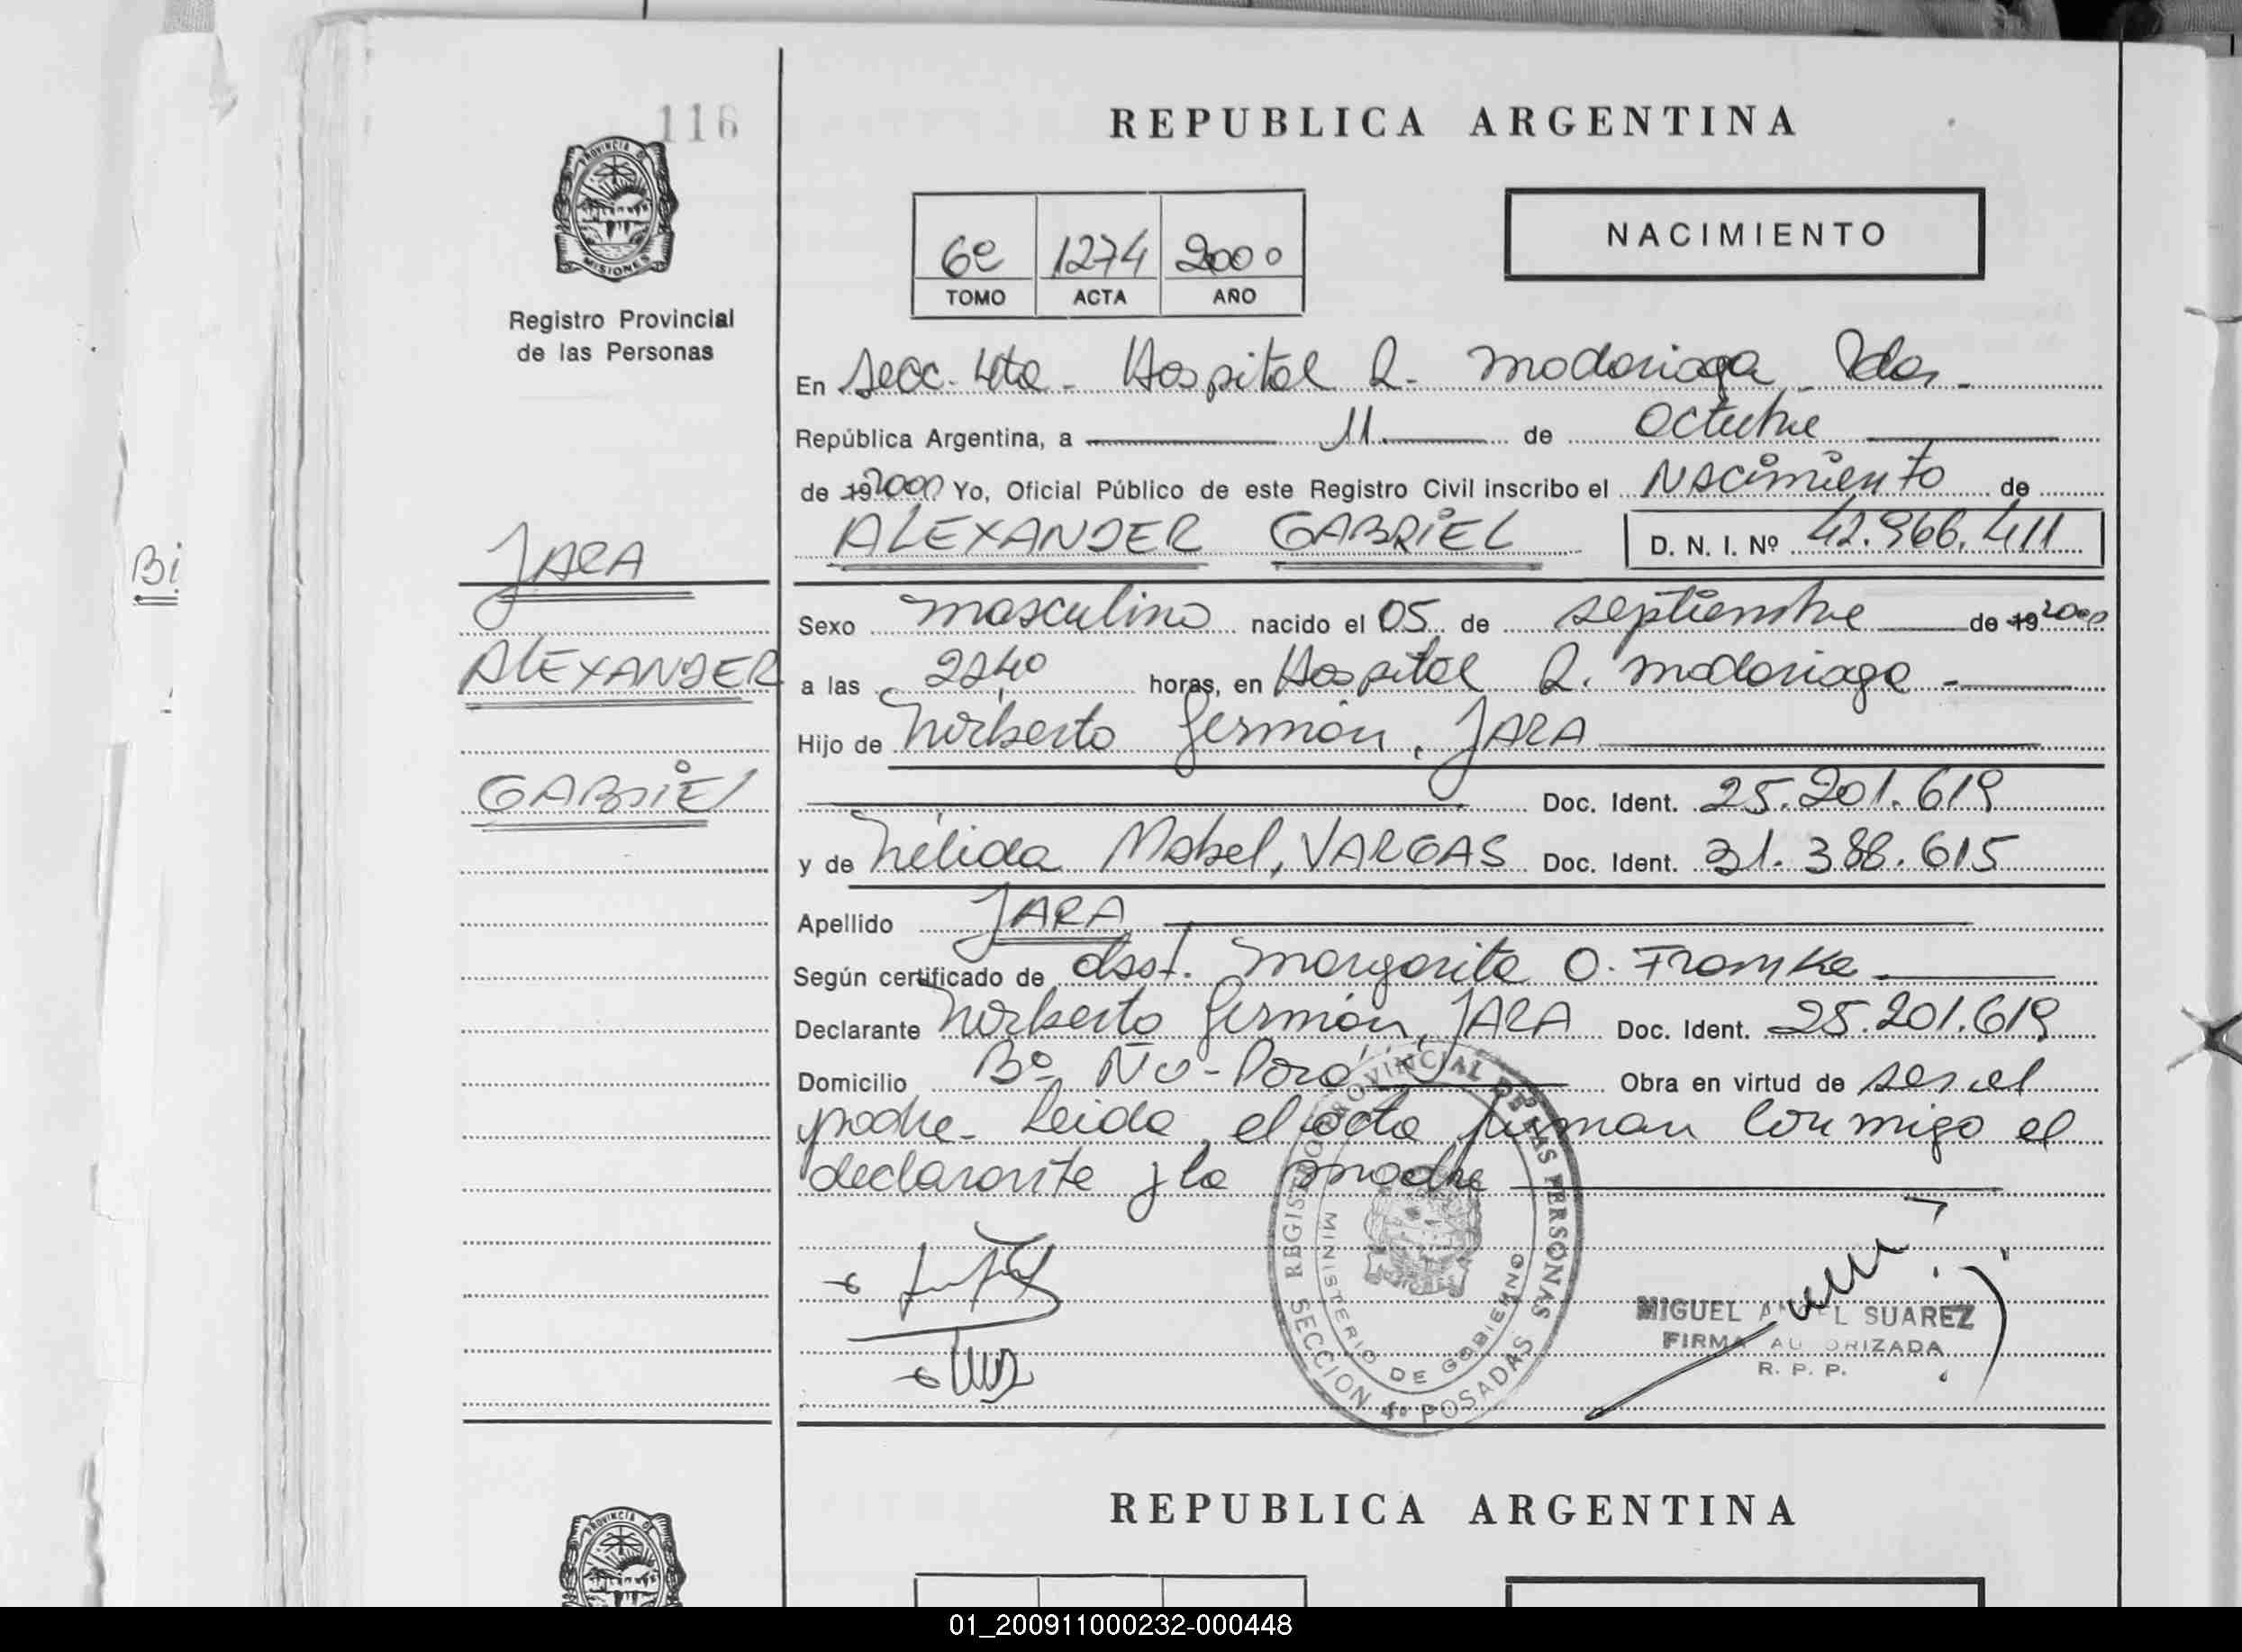 116
REPUBLICA ARGENTINA
PROVINCIA DE
MISIONES
Registro Provincial
de las Personas
NACIMIENTO
6º 1274 2000
TOMO ACTA AÑO
En Secc. 4ta - Hospital R. Madariaga - Pdas -
República Argentina, a 11 de Octubre
de 19 2000 Yo, Oficial Público de este Registro Civil inscribo el NACimiento de
ALEXANDER GABRiEL D. N. I. Nº 42.966.411
JARA
ALEXANDER
GABRiEL
Bi
Sexo masculino nacido el 05 de septiembre de 19 2000
a las 2240 horas, en Hospital R. Madariaga -
Hijo de Norberto Germán, JARA
Doc. Ident. 25.201.619
y de Nélida Mabel, VARGAS Doc. Ident. 31.388.615
Apellido JARA
Según certificado de obst. Margarita O. Framke
Declarante Norberto Germán, JARA Doc. Ident. 25.201.619
Domicilio Bº Ñu-Porá Obra en virtud de ser el
padre - Leida el acta firman conmigo el
declarante y la madre
REGISTRO PROVINCIAL DE LAS PERSONAS
MINISTERIO DE GOBIERNO
SECCION 4º POSADAS
MIGUEL ANGEL SUAREZ
FIRMA AUTORIZADA
R. P. P.
REPUBLICA ARGENTINA
PROVINCIA DE
01_200911000232-000448